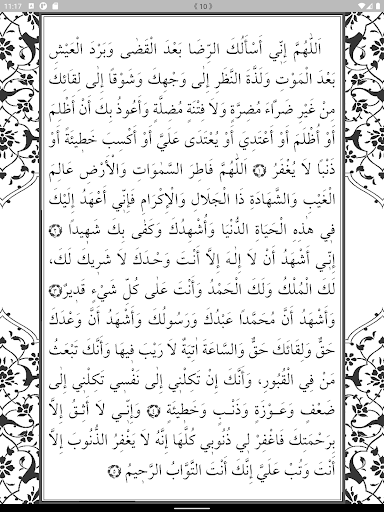 11:17
﴾ 10 ﴿
اَللّٰهُمَّ إِنِّي أَسْأَلُكَ الرِّضَا بَعْدَ الْقَضَى وَبَرْدَ الْعَيْشِ
بَعْدَ الْمَوْتِ وَلَذَّةَ النَّظَرِ إِلَى وَجْهِكَ وَشَوْقًا إِلَى لِقَائِكَ
مِنْ غَيْرِ ضَرَّاءَ مُضِرَّةٍ وَلَا فِتْنَةٍ مُضِلَّةٍ وَأَعُوذُ بِكَ أَنْ أَظْلِمَ
أَوْ أُظْلَمَ أَوْ أَعْتَدِيَ أَوْ يُعْتَدَى عَلَيَّ أَوْ أَكْسِبَ خَطِيئَةً أَوْ
ذَنْبًا لَا يُغْفَرُ اَللّٰهُمَّ فَاطِرَ السَّمٰوَاتِ وَالْأَرْضِ عَالِمَ
الْغَيْبِ وَالشَّهَادَةِ ذَا الْجَلَالِ وَالْإِكْرَامِ فَإِنِّي أَعْهَدُ إِلَيْكَ
فِي هٰذِهِ الْحَيَاةِ الدُّنْيَا وَأُشْهِدُكَ وَكَفَى بِكَ شَهِيدًا
إِنِّي أَشْهَدُ أَنْ لَا إِلٰهَ إِلَّا أَنْتَ وَحْدَكَ لَا شَرِيكَ لَكَ،
لَكَ الْمُلْكُ وَلَكَ الْحَمْدُ وَأَنْتَ عَلَى كُلِّ شَيْءٍ قَدِيرٌ
وَأَشْهَدُ أَنَّ مُحَمَّدًا عَبْدُكَ وَرَسُولُكَ وَأَشْهَدُ أَنَّ وَعْدَكَ
حَقٌّ وَلِقَائَكَ حَقٌّ وَالسَّاعَةَ اٰتِيَةٌ لَا رَيْبَ فِيهَا وَأَنَّكَ تَبْعَثُ
مَنْ فِي الْقُبُورِ، وَأَنَّكَ إِنْ تَكِلْنِي إِلَى نَفْسِي تَكِلْنِي إِلَى
ضَعْفٍ وَعَوْرَةٍ وَذَنْبٍ وَخَطِيئَةٍ وَإِنِّي لَا أَثِقُ إِلَّا
بِرَحْمَتِكَ فَاغْفِرْ لِي ذُنُوبِي كُلَّهَا إِنَّهُ لَا يَغْفِرُ الذُّنُوبَ إِلَّا
أَنْتَ وَتُبْ عَلَيَّ إِنَّكَ أَنْتَ التَّوَّابُ الرَّحِيمُ